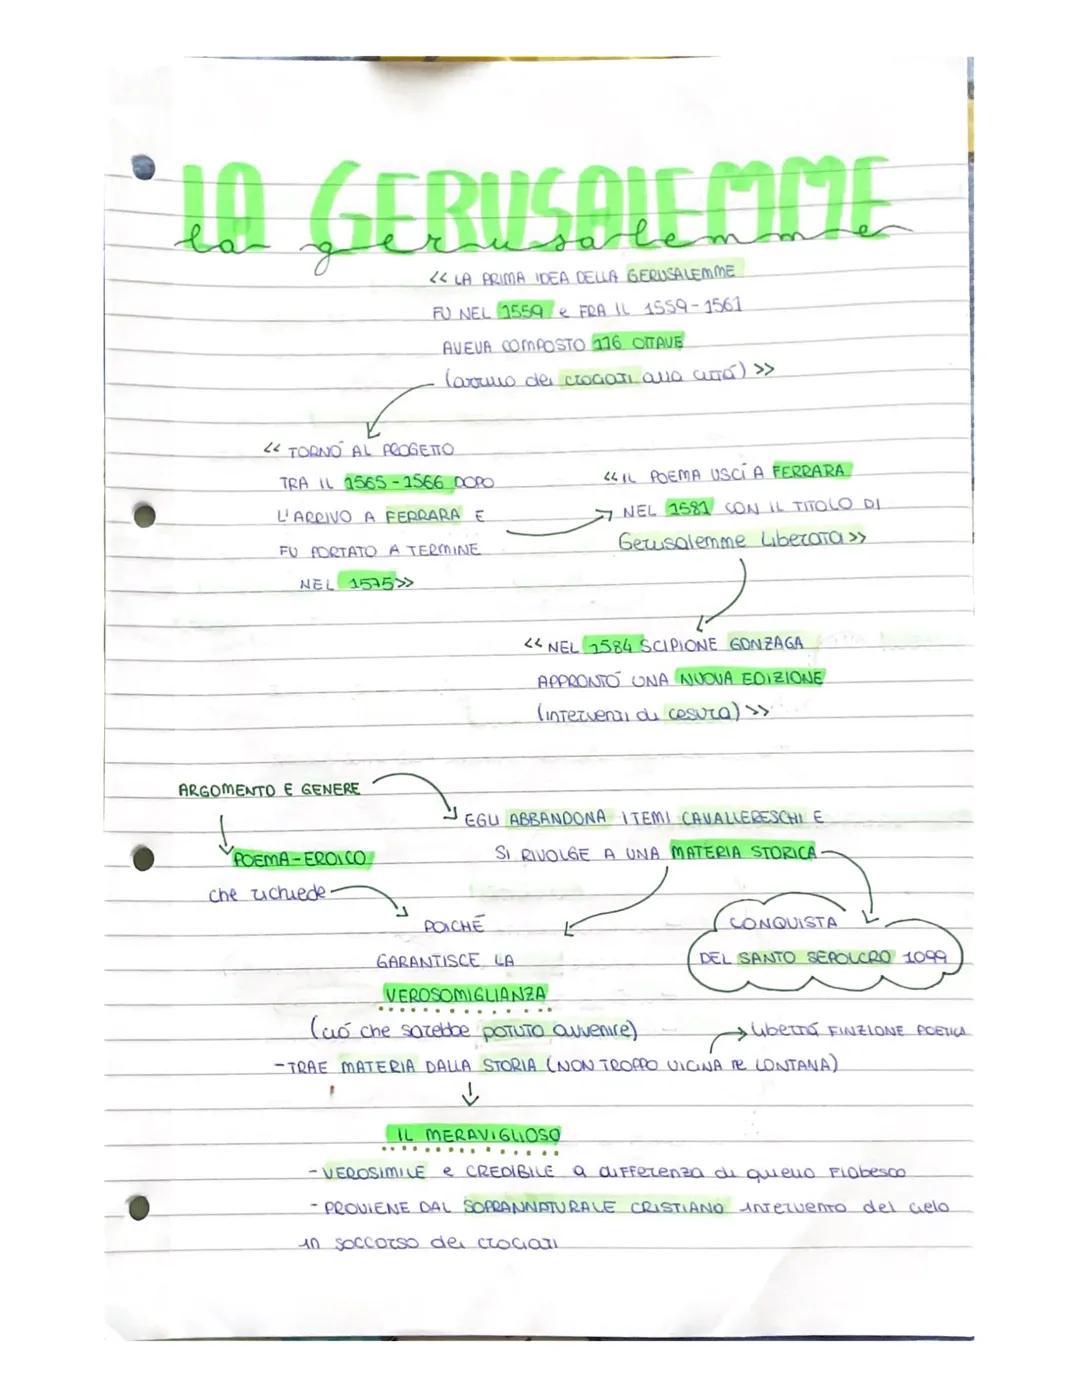 LA GERUSALEMME
la gerusalemme
<< LA PRIMA IDEA DELLA GERUSALEMME
FU NEL 1559 e FRA IL 1559-1561
AVEVA COMPOSTO 116 OTTAVE
(arrivo dei crociati alla città) >>
<< TORNÒ AL PROGETTO
TRA IL 1565-1566 DOPO
L'ARRIVO A FERRARA E
FU PORTATO A TERMINE
NEL 1575>>
<< IL POEMA USCÌ A FERRARA
NEL 1581 CON IL TITOLO DI
Gerusalemme Liberata >>
<< NEL 1584 SCIPIONE GONZAGA
APPRONTÒ UNA NUOVA EDIZIONE
(interventi di cesura) >>
ARGOMENTO E GENERE
EGLI ABBANDONA I TEMI CAVALLERESCHI E
SI RIVOLGE A UNA MATERIA STORICA
POEMA-EROICO
che richiede
POICHÉ
GARANTISCE LA
VEROSOMIGLIANZA
(ciò che sarebbe potuto avvenire)
CONQUISTA
DEL SANTO SEPOLCRO 1099
libertà FINZIONE POETICA
-TRAE MATERIA DALLA STORIA (NON TROPPO VICINA né LONTANA)
IL MERAVIGLIOSO
-VEROSIMILE e CREDIBILE a differenza di quello Fiabesco
-PROVIENE DAL SOPRANNATURALE CRISTIANO intervento del cielo
in soccorso dei crociati